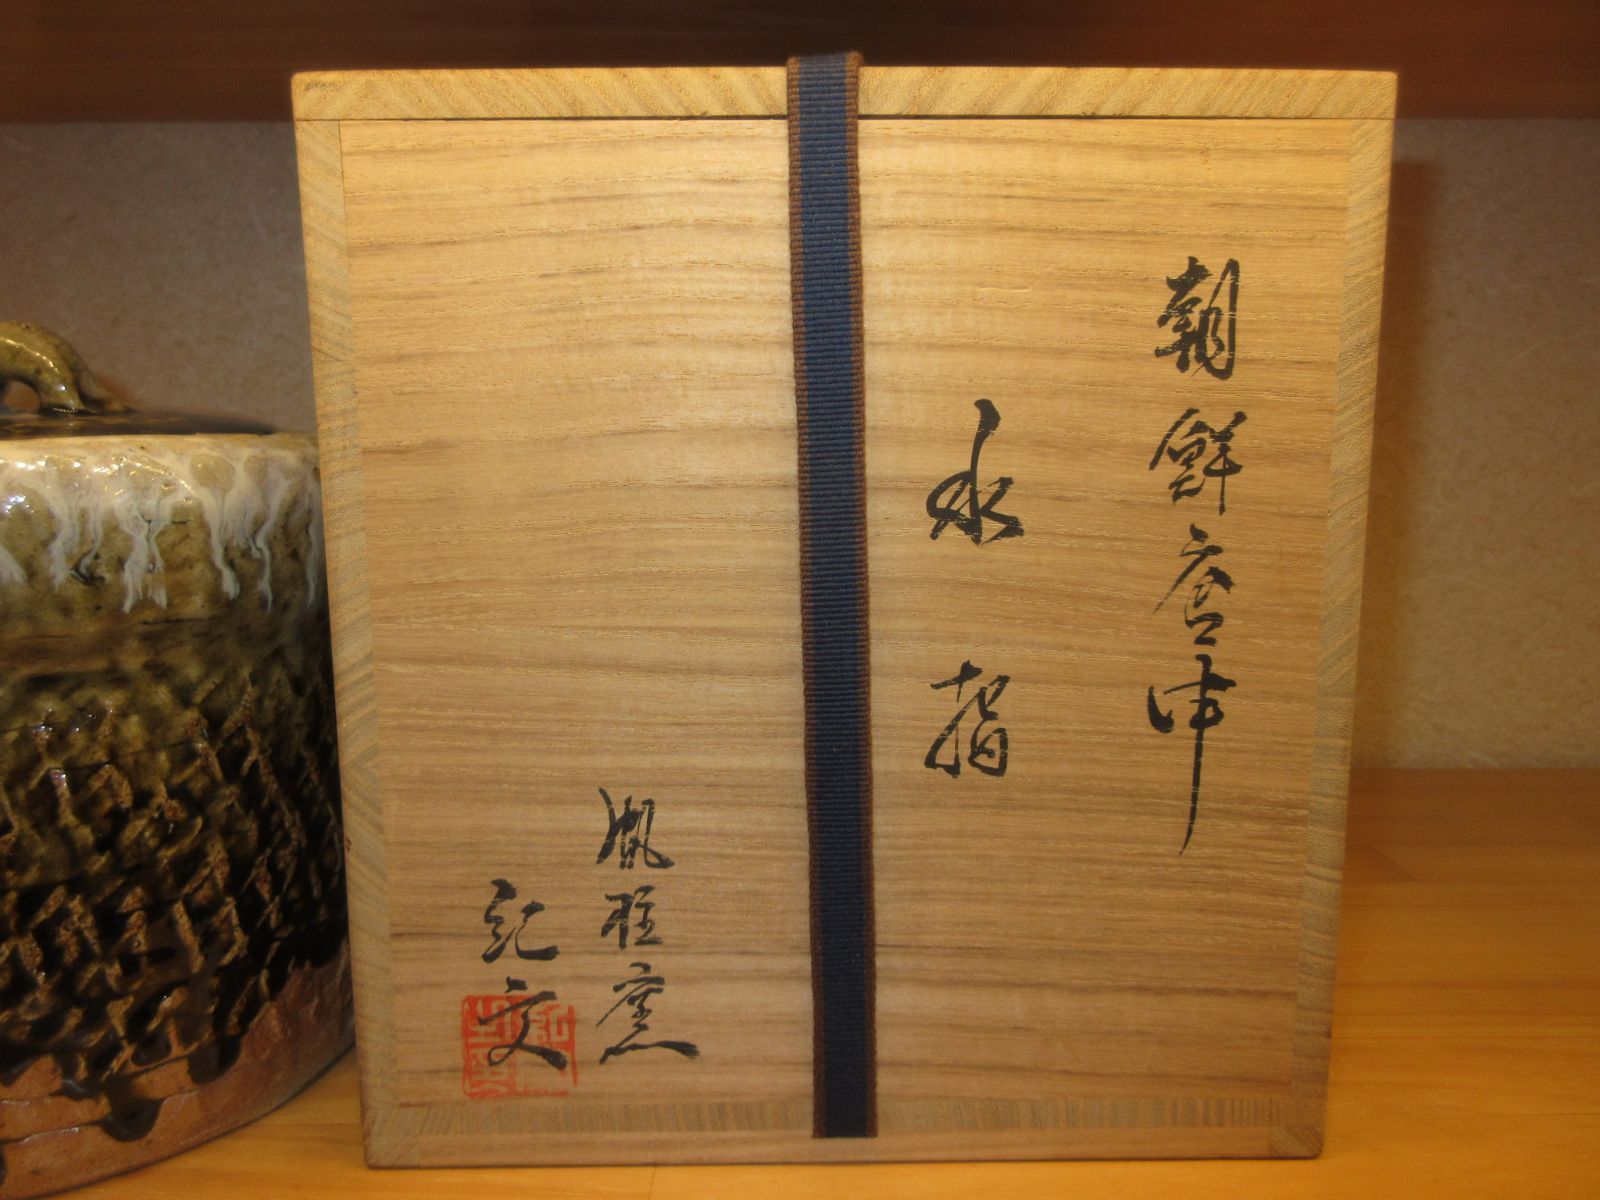 朝鮮唐津
水指
帆柱窯
紀文